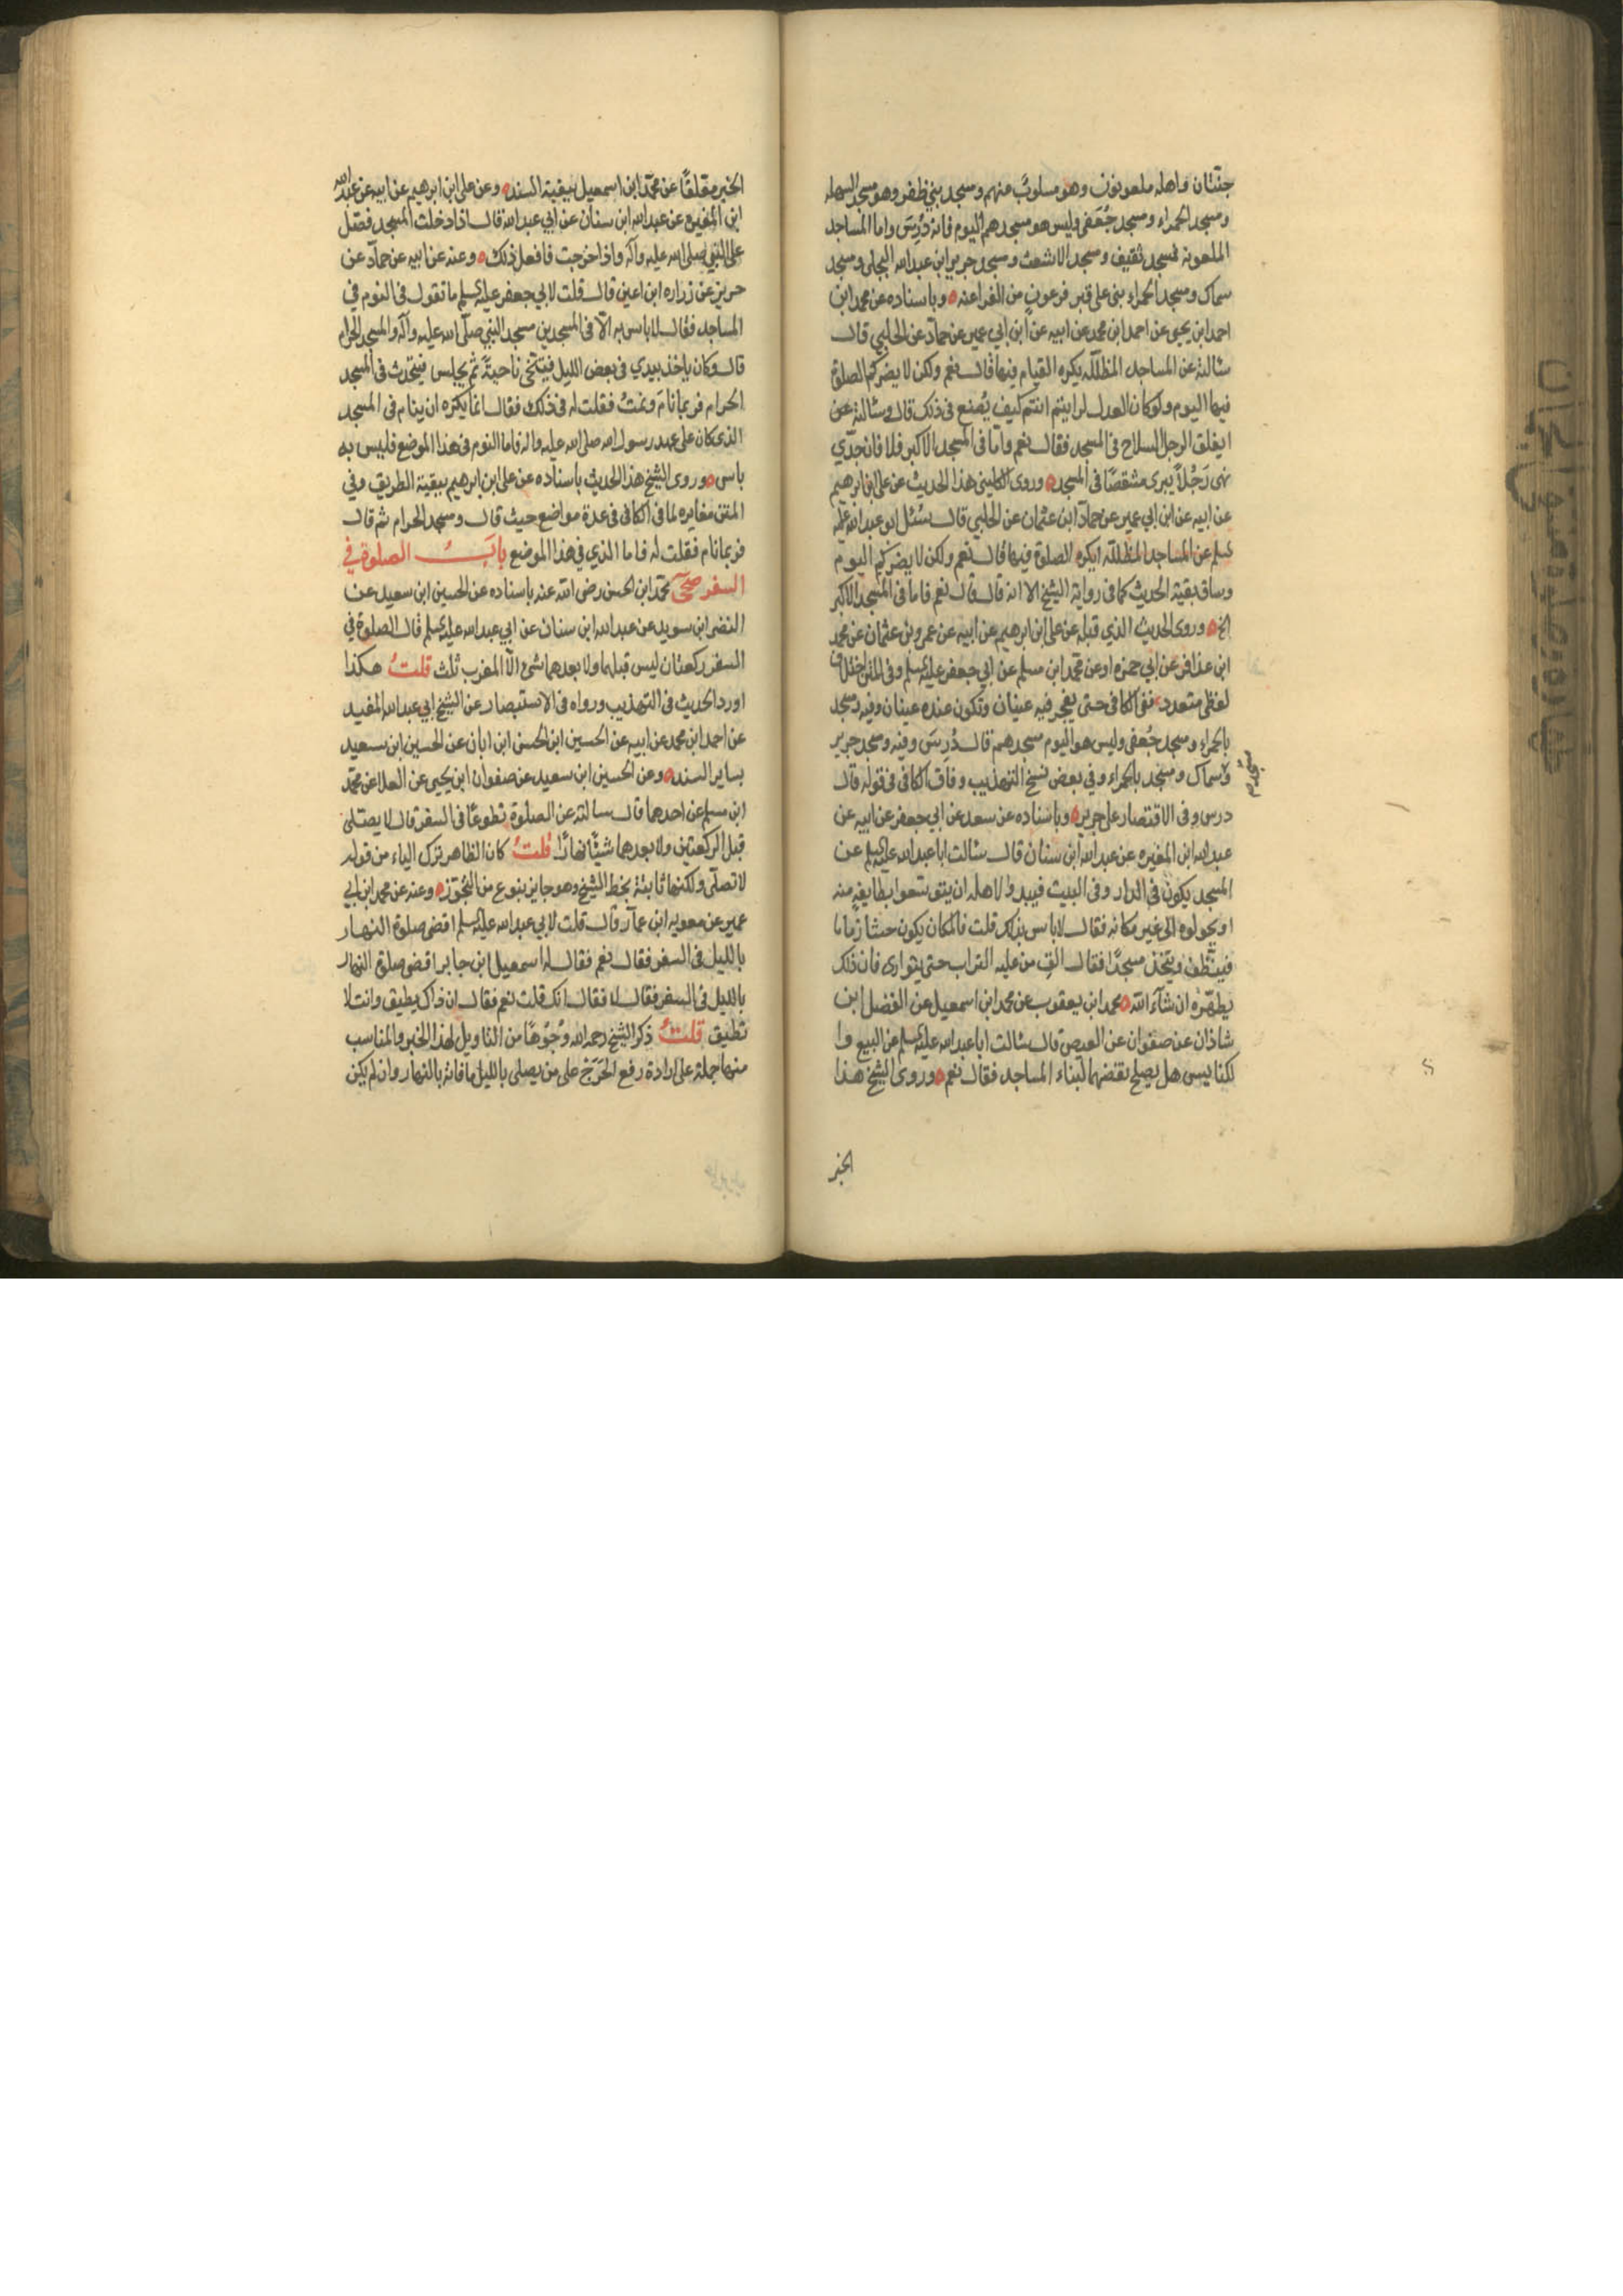 جنّتان واهله ملعونون وهو مسلوب منهم ومسجد بني ظفر وهو مسجد السهله
ومسجد الحمراء ومسجد جُعفى وليس هو مسجدهم اليوم فانه دُرِسَ واما المساجد
الملعونة فمسجد ثقيف ومسجد الاشعث ومسجد جرير ابن عبد الله البجلى ومسجد
سماك ومسجد الحمراء بنى على قبر فرعون من الفراعنه وباسناده عن محمد ابن
احمد ابن يحيى عن احمد ابن محمد عن ابيه عن ابن ابي عمير عن حمّاد عن الحلبي قال
سئالته عن المساجد المظللّه يكره القيام فيها قال نعم ولكن لا يضركم الصلوة
فيها اليوم ولو كان العدل لرايتم انتم كيف يُصنع فى ذلك قال وسئالته عن
ايعلق الرجل السلاح فى المسجد فقال نعم وامّا فى المسجد الاكبر فلا فان جدّي
نهى رَجُلاً يبرى مشقصًا فى المسجد وروى الكلينى هذا الحديث عن على ابن ابرهيم
عن ابيه عن ابن ابي عمير عن حمّاد ابن عثمان عن الحلبي قال سئل ابو عبد الله عليه
السلم عن المساجد المظللّه ايكره الصلوة فيها قال نعم ولكن لا يضركم اليوم
وساق بقية الحديث كما فى رواية الشيخ الا انه قال قال نعم فاما فى المسجد الاكبر
الخ وروى الحديث الذي قبله عن على ابن ابرهيم عن ابيه عن عمرو بن عثمان عن محمد
ابن عذافر عن ابي حمزه او عن محمّد ابن مسلم عن ابي جعفر عليه السلم وفى المتن اختلاف
لفظى متعدد ففى الكافى حتى يفجر فيه عينان وتكون عنده عينان وفيه ومسجد
بالحمراء ومسجد جُعفى وليس هو اليوم مسجدهم قال دُرِسَ وفيه ومسجد جرير
وسماك ومسجد بالحمراء وفي بعض نسخ التهذيب وفاق الكافى فى قوله قال
مسجد
درس وفى الاقتصار على جرير وباسناده عن سعد عن ابي جعفر عن ابيه عن
عبد الله ابن المغيره عن عبد الله ابن سنان قال سئالت ابا عبد الله عليه السلم عن
المسجد يكون فى الدار وفى البيت فيبدو لاهله ان يتوسّعوا بطايفةٍ منه
او يحولوه الى غير مكانه فقال لا باس بذلك قلت فالمكان يكون حشا زمانا
فينظّف ويتخذ مسجدًا فقال الق من عليه التراب حتى يتوارى فان ذلك
يطهّره ان شآء الله محمد ابن يعقوب عن محمد ابن اسمعيل عن الفضل ابن
شاذان عن صفوان عن العيص قال سئالت ابا عبد الله عليه السلم عن البيع وا
لكنايس هل يصلح نقضهما لبناء المساجد فقال نعم وروى الشيخ هذا
الخبر
الخبر معلقًا عن محمّد ابن اسمعيل ببقية السند وعن على ابن ابرهيم عن ابيه عن عبد الله
ابن المغيره عن عبد الله ابن سنان عن ابي عبد الله قال اذا دخلت المسجد فصلّ
على النبي صلى الله عليه وآله واذا خرجت فافعل ذلك وعنه عن ابيه عن حمّاد عن
حريز عن زراره ابن اعين قال قلت لابي جعفر عليه السلم ما تقول فى النوم في
المساجد فقال لا باس به الّا فى المسجدين مسجد النبي صلّى الله عليه وآله والمسجد الحرام
قال وكان ياخذ بيدي فى بعض الليل فيتنحّى ناحيةً ثم يجلس فيتحدث فى المسجد
الحرام فربما نام ونمتُ فقلت له فى ذلك فقال انما يكره ان ينام فى المسجد
الذى كان على عهد رسول الله صلى الله عليه واله فاما النوم فى هذا الموضع فليس به
باس وروى الشيخ هذا الحديث باسناده عن على ابن ابرهيم ببقية الطريق وفي
المتن مغايره لما فى الكافى فى عدة مواضع حيث قال ومسجد الحرام ثم قال
فربما نام فقلت له فاما الذي في هذا الموضع بابُ الصلوة في
السفر صحّى محمّد ابن الحسن رضى الله عنه باسناده عن الحسين ابن سعيد عن
النضر ابن سويد عن عبد الله ابن سنان عن ابي عبد الله عليه السلم قال الصلوة في
السفر ركعتان ليس قبلهما ولا بعدهما شئ الّا المغرب ثلث قلتُ هكذا
اورد الحديث فى التهذيب ورواه فى الاستبصار عن الشيخ ابي عبد الله المفيد
عن احمد ابن محمد عن ابيه عن الحسين ابن الحسن ابن ابان عن الحسين ابن سعيد
بساير السند وعن الحسين ابن سعيد عن صفوان ابن يحيى عن العلا عن محمّد
ابن مسلم عن احدهما قال سالته عن الصلوة تطوعًا فى السفر قال لا يصلّى
قبل الركعتين ولا بعدهما شيئًا نهارًا قلتُ كان الظاهر ترك الياء من قوله
لا تصلّى ولكنها ثابتة بخط الشيخ وهو جايز بنوع من التجوّز وعنه عن محمد ابن ابي
عمير عن معويه ابن عمّار قال قلت لابي عبد الله عليه السلم اقضى صلوة النهار
بالليل فى السفر فقال نعم فقال له اسمعيل ابن جابر اقضى صلوة النهار
بالليل فى السفر فقال لا فقال انك قلت نعم فقال ان ذاك يطيق وانت لا
تطيق قلتُ ذكر الشيخ رحمه الله وُجُوهًا من التاويل لهذا الخبر والمناسب
منها حمله على ارادة رفع الحَرَج على من يصلى بالليل ما فاته بالنهار وان لم يكن